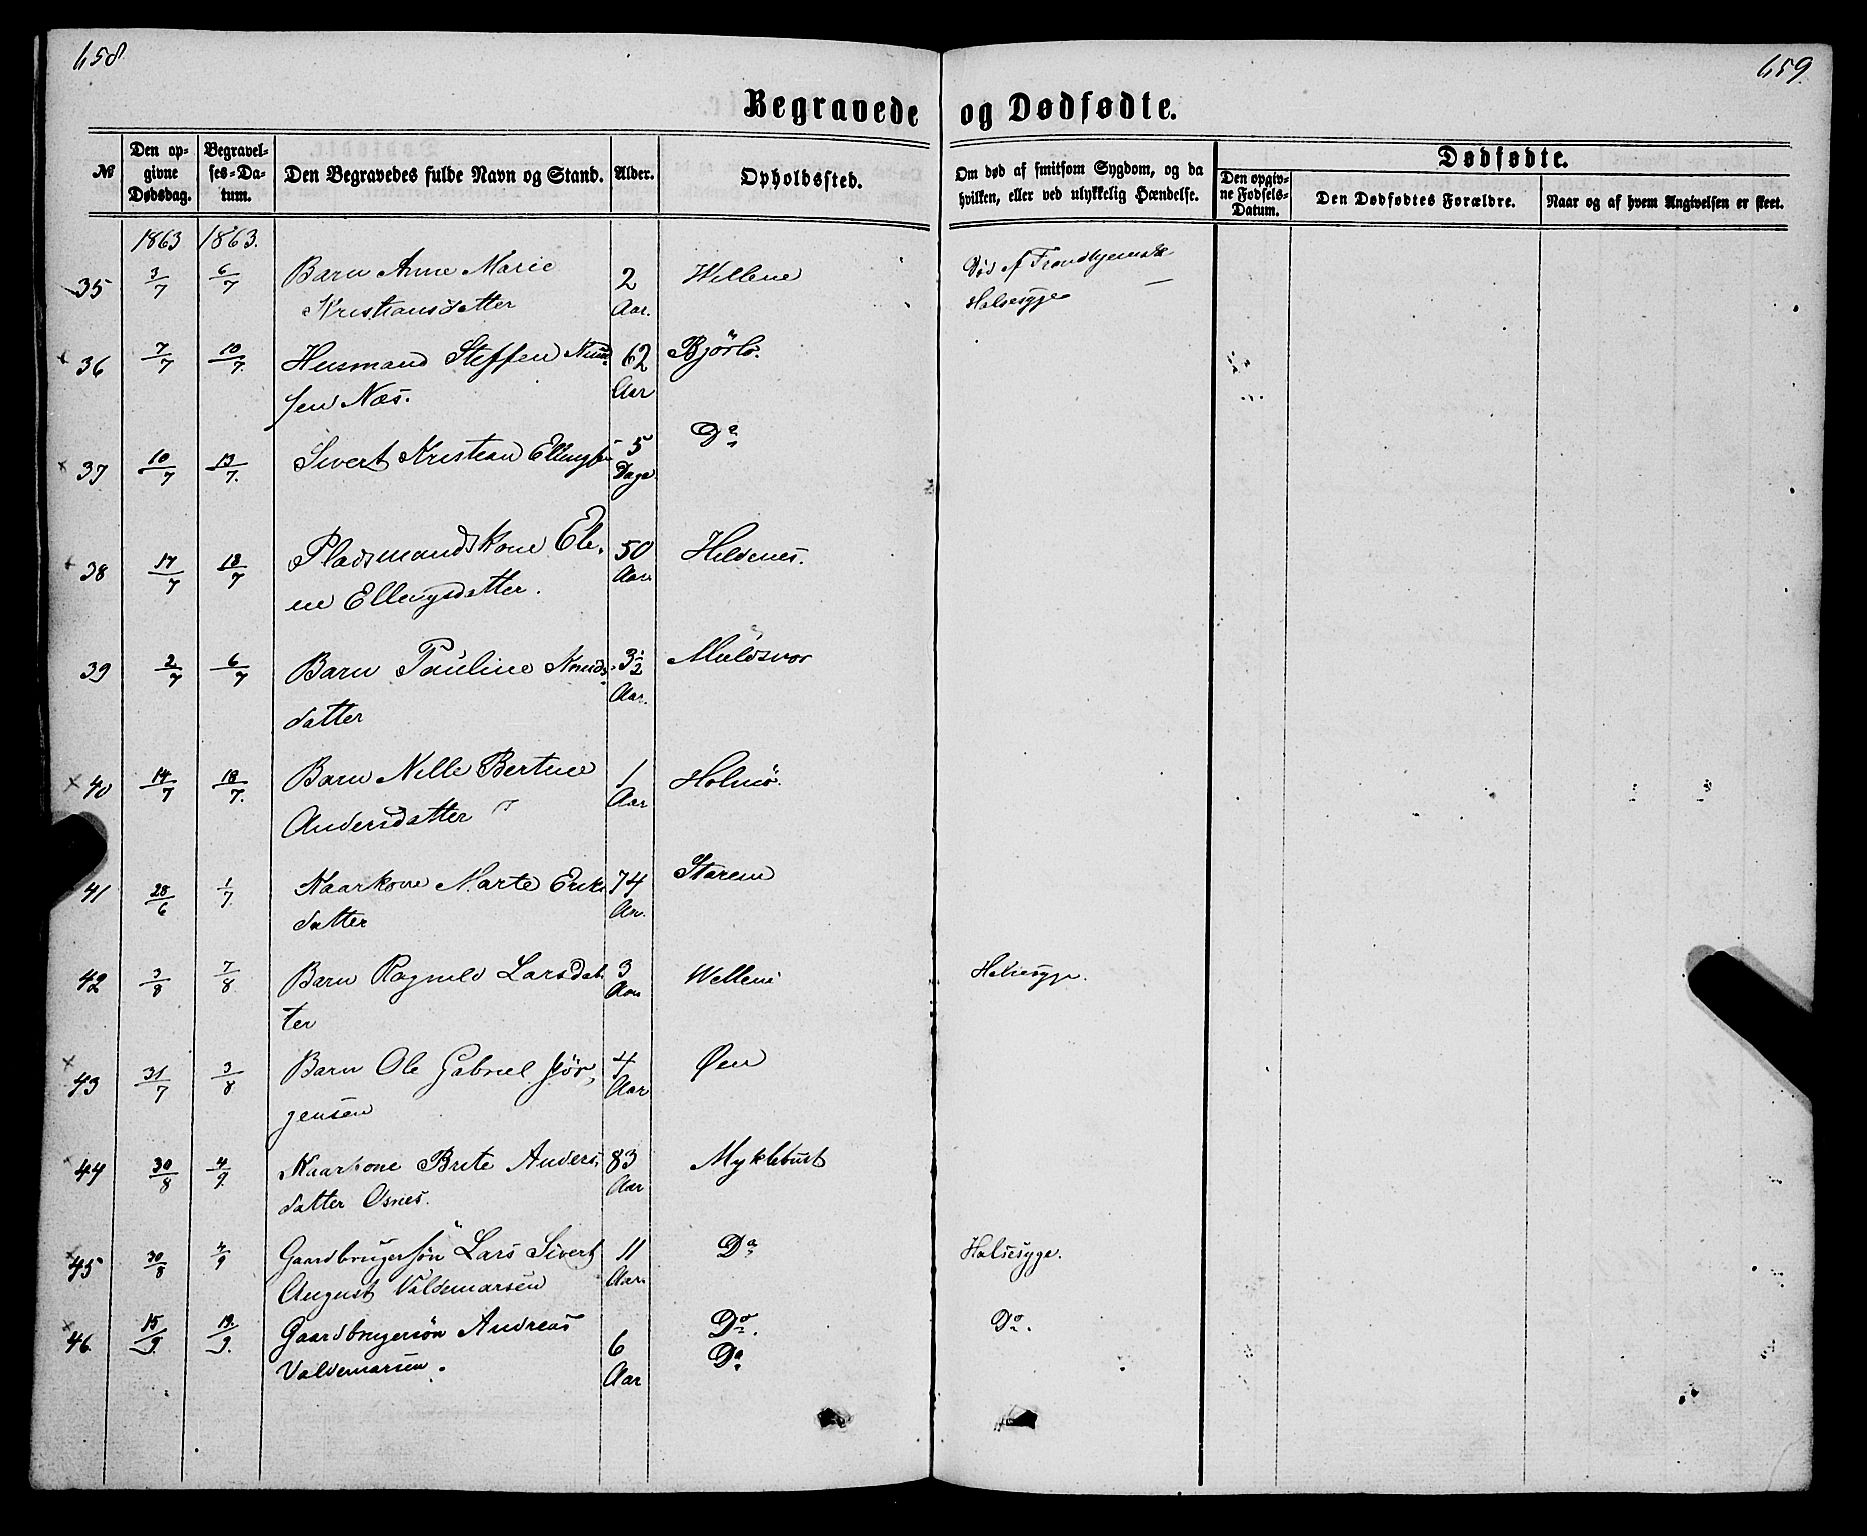 658
659.
Begravede og Dødfødte.
№ Den opgivne Dødsdag. Begravelses-Datum. Den Begravedes fulde Navn og Stand. Alder. Opholdssted. Om død af smitsom Sygdom, og da hvilken, eller ved ulykkelig Hændelse. Dødfødte.
Den opgivne Fødsels-Datum. Den Dødfødtes Forældre. Naar og af hvem Angivelsen er skeet.
1863 1863.
35 3/7 6/7 Barn Anne Marie 2 Wellene Død af Trondhjemsk
Kristiansdatter Aar. Halsesyge
36 7/7 10/7. Husmand Steffen Knud- 62 Bjørlo.
sen Næs. Aar
37 10/7 13/7. Sivert Kristian Ellingsen 5 Do
Dage
38 17/7 18/7 Pladsmandskone Ele- 50 Hildenes.
ne Ellingsdatter. Aar
39 2/7 6/7 Barn Pauline Knuds- 3½ Muldsvor
datter Aar.
40 14/7 18/7. Barn Nille Bertine 1 Holmø.
Andersdatter Aar
41 28/6 1/7. Kaarkone Marte Eriks 74
datter Aar.
42 3/8 7/8 Barn Ragnild Larsdat- 3 Wellene Halsesyge.
ter Aar
43 31/7 3/8 Barn Ole Gabriel Jør- 4 Øen
gensen Aar
44 30/8 4/9. Kaarkone Brite Anders- 83 Myklebust
datter Osnes. Aar
45 30/8 4/9 Gaardbrugersøn Lars Sivert 11 Do Halsesyge.
August Valdemarsen Aar.
46. 15/9. 19./9. Gaardbrugersøn Andreas 6 Do. Do.
Valdemarsen. Aar Do